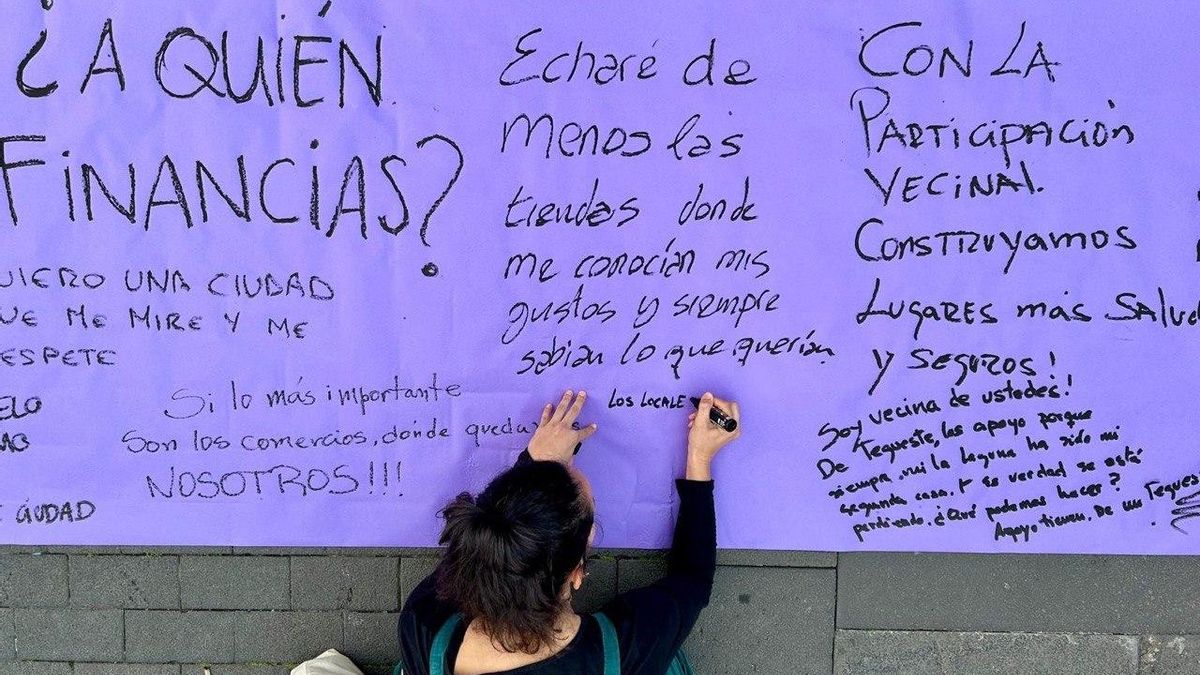 ¿A QUIÉN
FINANCIAS?
QUIERO UNA CIUDAD
QUE ME MIRE Y ME
RESPETE
Si lo más importante
Son los comercios, dónde
NOSOTROS!!!
CIUDAD
Echaré de
menos las
tiendas donde
me conocían mis
gustos y siempre
sabían lo que querían
LOS LOCALE
CON LA
PARTICIPACIÓN
VECINAL.
CONSTRUYAMOS
LUGARES más SALUD
Y SEGUROS!
Soy vecina de ustedes!
De Tegueste, les apoyo porque
siempre, mi la laguna ha sido mi
segunda casa. Y es verdad se está
perdiendo. ¿Qué podemos hacer?
Apoyo tienen. De un Tegues